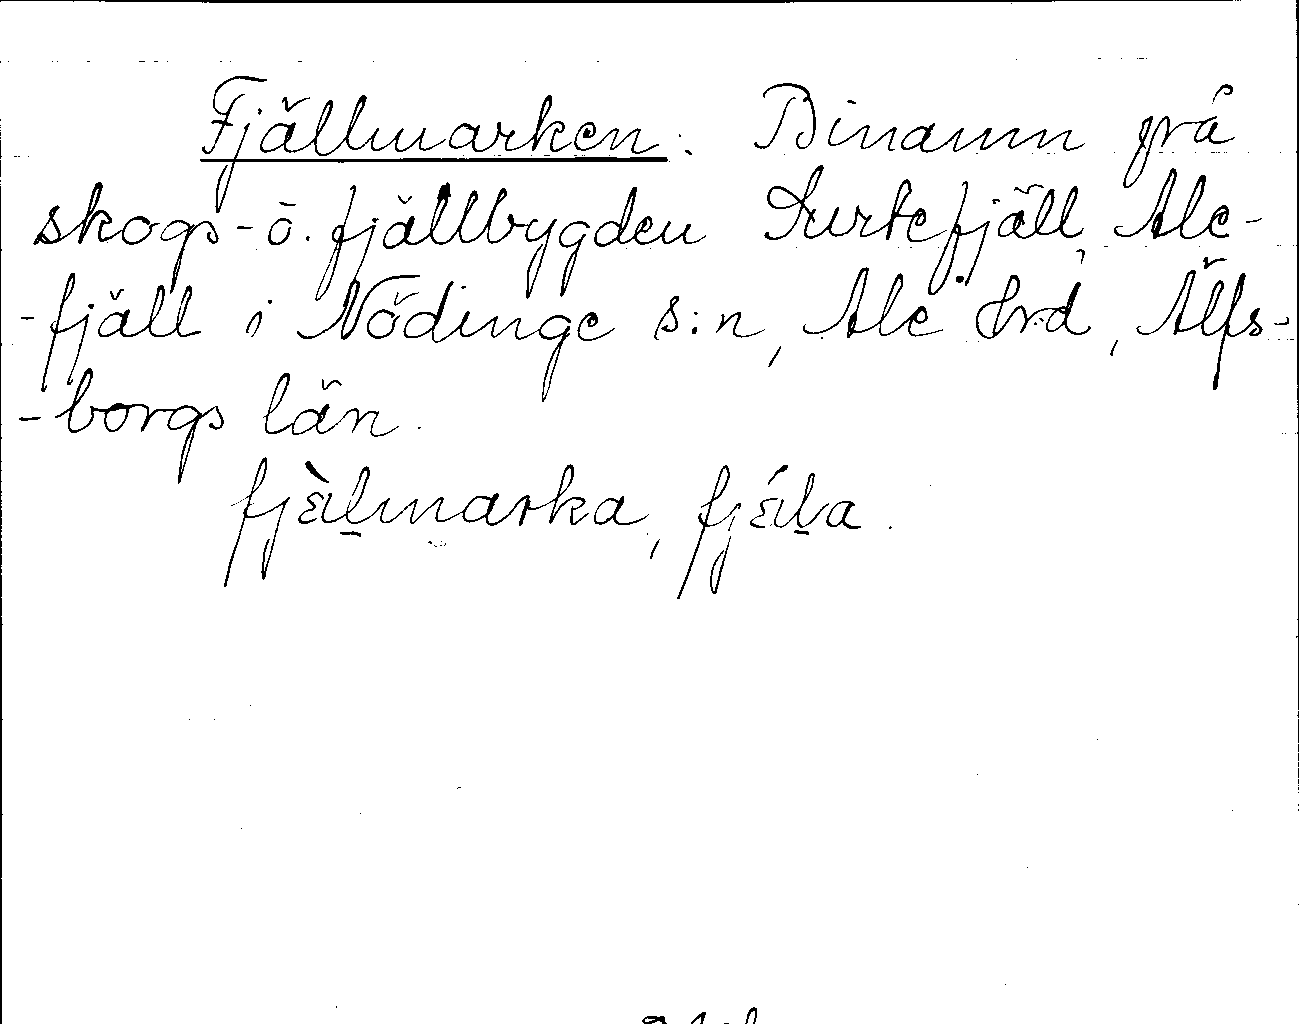 Fjällmarken. Binamn på
skogs- o. fjällbygden Surtefjäll, Ale-
-fjäll i Nödinge s:n, Ale hrd, Älfs-
-borgs län.
fjὲlmarka, fjέla.